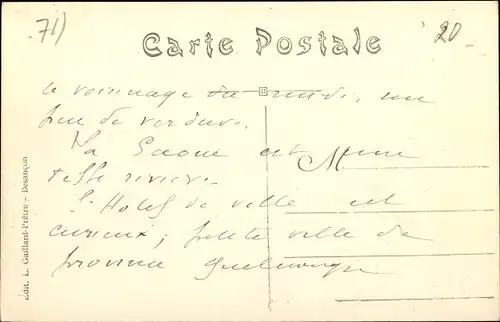 71)
20
Carte Postale
le voisinage du midi, un
peu de verdure.
La Saone est une
M
belle rivière.
L'Hotel de ville est
curieux; petite ville de
province quelconque
Edit. L. Gaillard-Prêtre - Besançon